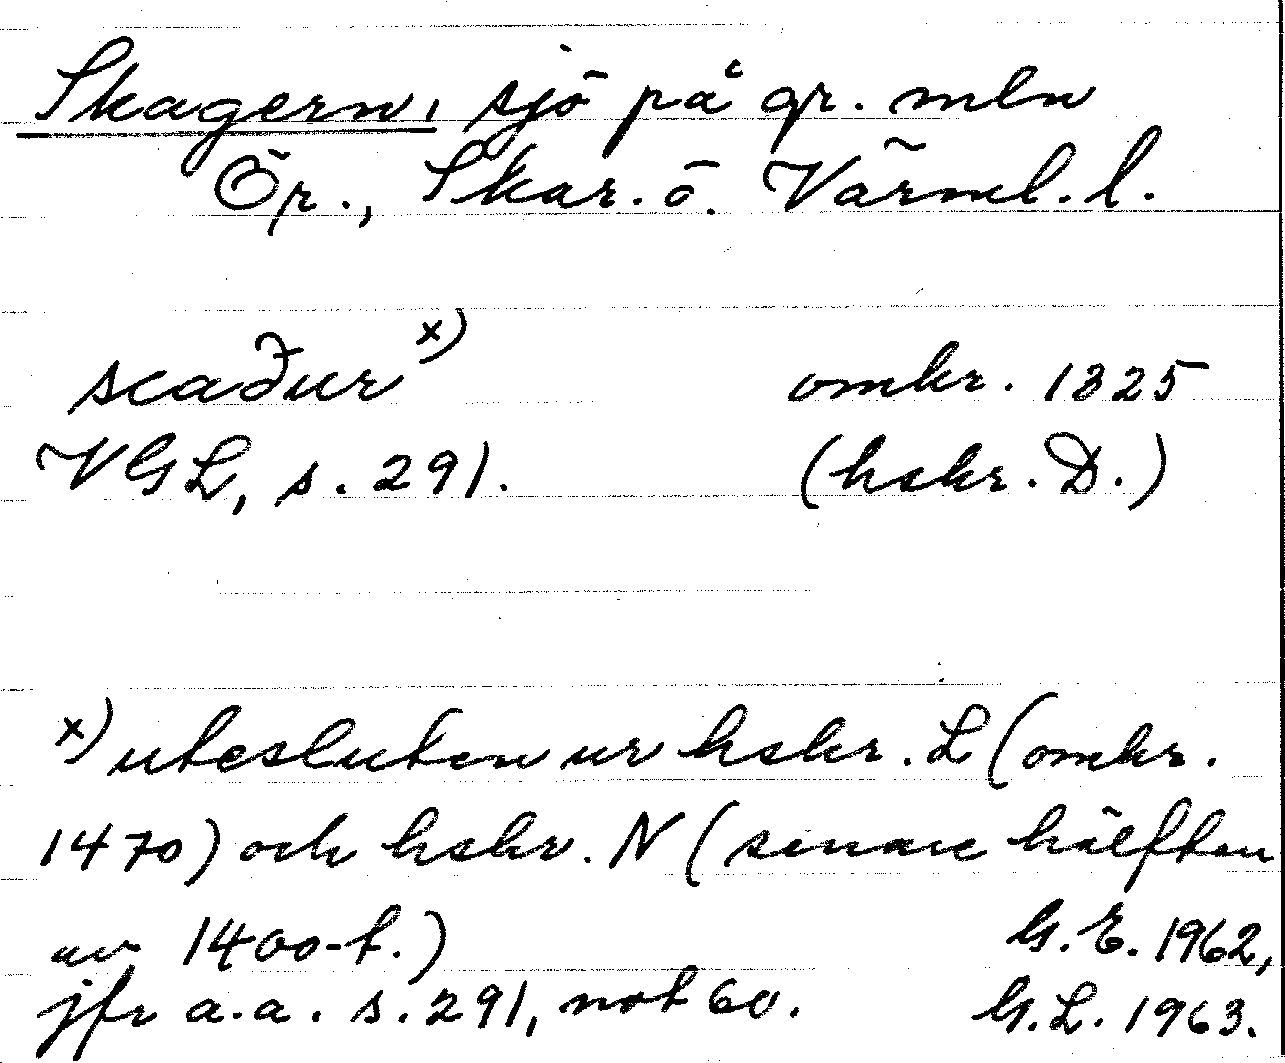 Skagern, sjö på gr. mln
Ör., Skar. o. Värml. l.
scaður x) omkr. 1325
VGL, s. 291. (hskr. D.)
x) utesluten ur hskr. L (omkr.
1470) och hskr. N (senare hälften
av 1400-t.) G. E. 1962,
jfr a.a. s. 291, not 60. G. L. 1963.